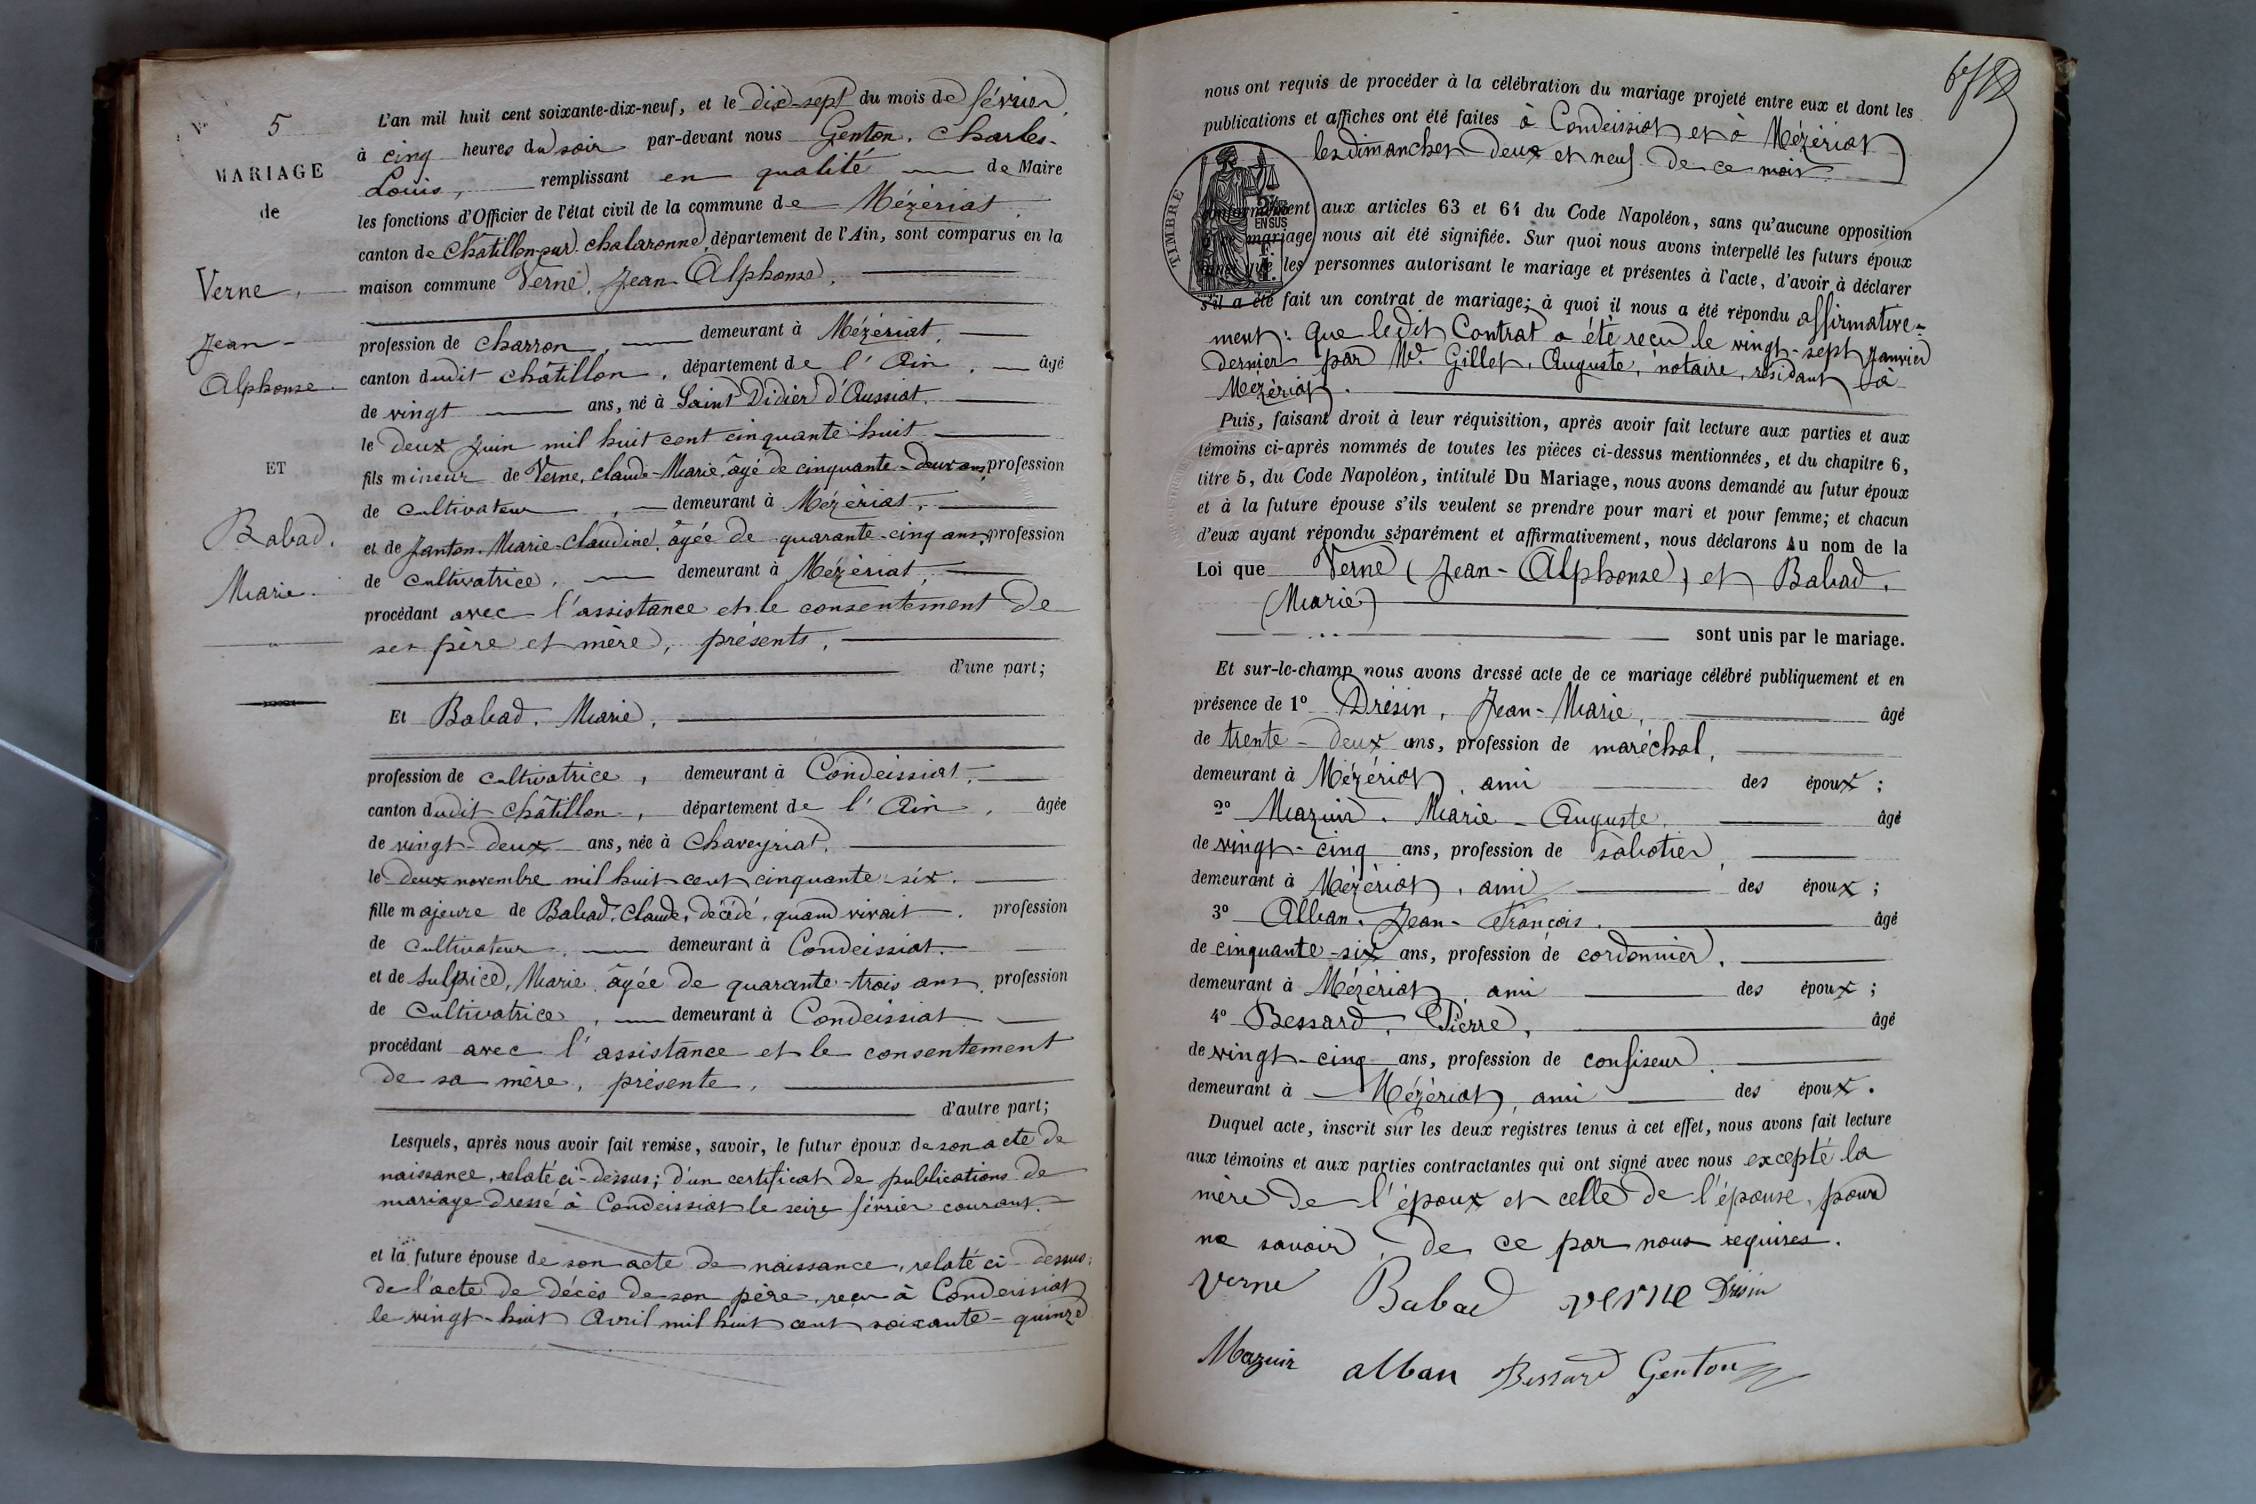 N° 5
MARIAGE
de
Verne,
Jean-
Alphonse
ET
Babad.
Marie.
L'an mil huit cent soixante-dix-neuf, et le dix-sept du mois de février,
à cinq heures du soir par-devant nous Genton, Charles-
Louis, remplissant en qualité de Maire
les fonctions d'Officier de l'état civil de la commune de Mézériat,
canton de Châtillon-sur-Chalaronne, département de l'Ain, sont comparus en la
maison commune Verne, Jean Alphonse,
profession de charron, demeurant à Mézériat,
canton dudit Châtillon, département de l'Ain, âgé
de vingt ans, né à Saint Didier d'Aussiat,
le deux Juin mil huit cent cinquante huit
fils mineur de Verne, Claude-Marie, âgé de cinquante-deux ans, profession
de cultivateur, demeurant à Mézériat,
et de Janton, Marie-Claudine, âgée de quarante-cinq ans, profession
de cultivatrice, demeurant à Mézériat,
procédant avec l'assistance et le consentement de
ses père et mère, présents,
d'une part;
Et Babad, Marie,
profession de cultivatrice, demeurant à Condeissiat,
canton dudit Châtillon, département de l'Ain, âgée
de vingt-deux ans, née à Chaveyriat,
le deux novembre mil huit cent cinquante-six.
fille majeure de Babad, Claude, décédé, quand vivait, profession
de cultivateur, demeurant à Condeissiat.
et de Sulpice, Marie, âgée de quarante-trois ans, profession
de cultivatrice, demeurant à Condeissiat
procédant avec l'assistance et le consentement
de sa mère, présente,
d'autre part;
Lesquels, après nous avoir fait remise, savoir, le futur époux de son acte de
naissance, relaté ci-dessus; d'un certificat de publications de
mariage dressé à Condeissiat le seize février courant.
et la future épouse de son acte de naissance, relaté ci-dessus;
de l'acte de décès de son père, reçu à Condeissiat
le vingt-huit Avril mil huit cent soixante-quinze
nous ont requis de procéder à la célébration du mariage projeté entre eux et dont les
publications et affiches ont été faites à Condeissiat et à Mézériat
les dimanches deux et neuf de ce mois
TIMBRE
EN SUS
conformément aux articles 63 et 64 du Code Napoléon, sans qu'aucune opposition
mariage nous ait été signifiée. Sur quoi nous avons interpellé les futurs époux
ainsi que les personnes autorisant le mariage et présentes à l'acte, d'avoir à déclarer
s'il a été fait un contrat de mariage; à quoi il nous a été répondu affirmative-
ment: que ledit Contrat a été reçu le vingt-sept Janvier
dernier par Me Gillet, Auguste, notaire, résidant à
Mézériat.
Puis, faisant droit à leur réquisition, après avoir fait lecture aux parties et aux
témoins ci-après nommés de toutes les pièces ci-dessus mentionnées, et du chapitre 6,
titre 5, du Code Napoléon, intitulé Du Mariage, nous avons demandé au futur époux
et à la future épouse s'ils veulent se prendre pour mari et pour femme; et chacun
d'eux ayant répondu séparément et affirmativement, nous déclarons Au nom de la
Loi que Verne (Jean-Alphonse) et Babad,
(Marie)
sont unis par le mariage.
Et sur-le-champ nous avons dressé acte de ce mariage célébré publiquement et en
présence de 1° Drésin, Jean-Marie, âgé
de trente-deux ans, profession de maréchal,
demeurant à Mézériat, ami des époux;
2° Mazuir, Marie-Auguste, âgé
de vingt-cinq ans, profession de sabotier,
demeurant à Mézériat, ami des époux;
3° Alban, Jean-François, âgé
de cinquante-six ans, profession de cordonnier,
demeurant à Mézériat, ami des époux;
4° Bessard, Pierre, âgé
de vingt-cinq ans, profession de confiseur,
demeurant à Mézériat, ami des époux.
Duquel acte, inscrit sur les deux registres tenus à cet effet, nous avons fait lecture
aux témoins et aux parties contractantes qui ont signé avec nous excepté la
mère de l'époux et celle de l'épouse, pour
ne savoir, de ce par nous requises.
Verne Babad verne Drésin
Mazuir alban Bessard Genton